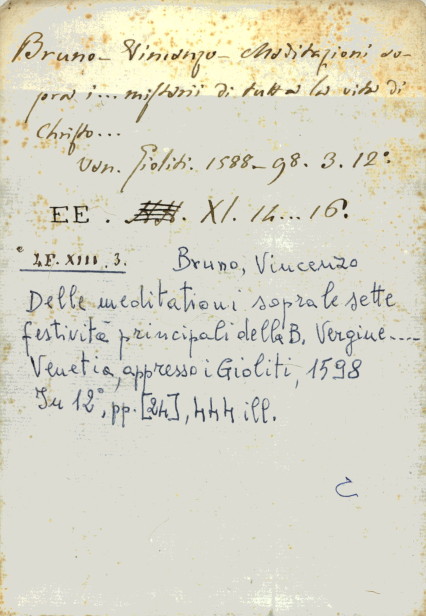 Bruno - Vincenzo - Meditazioni so-
pra i... misterii di tutta la vita di
Christo...
Ven. Gioliti. 1588-98. 3. 12°.
EE. XI. 14...16.
° 2.F. XIII. 3.
Bruno, Vincenzo
Delle meditationi sopra le sette
festività principali della B. Vergine....
Venetia, appresso i Gioliti, 1598
In 12°, pp. [24], 444 ill.